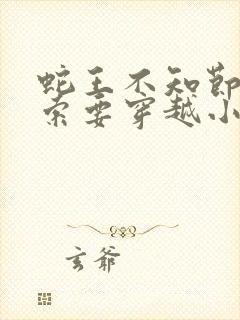 蛇王不知节
索要穿越小
玄爷